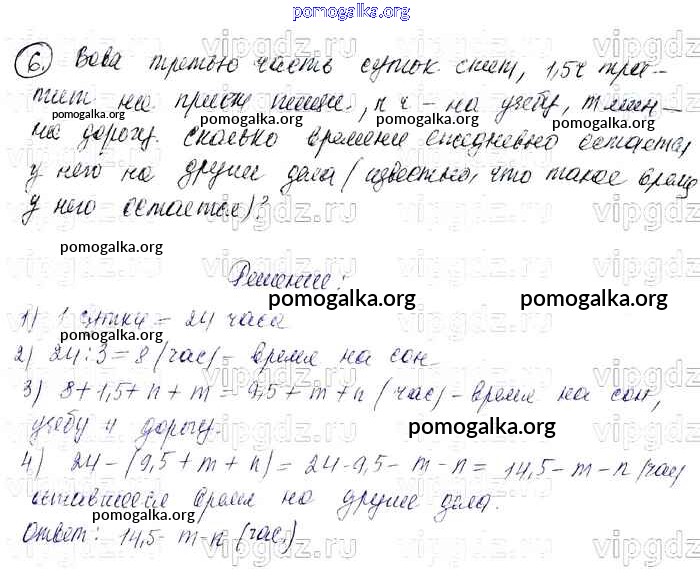 pomogalka.org
6. Вова третью часть суток спит, 1,5 ч тра-
тит на прием пищи, n ч - на учебу, m мин -
на дорогу. Сколько времени ежедневно остается
у него на другие дела (известно, что такое время
у него остается)?
pomogalka.org
Решение:
pomogalka.org
1) 1 сутки = 24 часа
2) 24 : 3 = 8 (час) - время на сон.
3) 8 + 1,5 + n + m = 9,5 + m + n (час) - время на сон,
учебу и дорогу.
pomogalka.org
4) 24 - (9,5 + m + n) = 24 - 9,5 - m - n = 14,5 - m - n (час)
оставшееся время на другие дела.
pomogalka.org
Ответ: 14,5 - m - n (час)